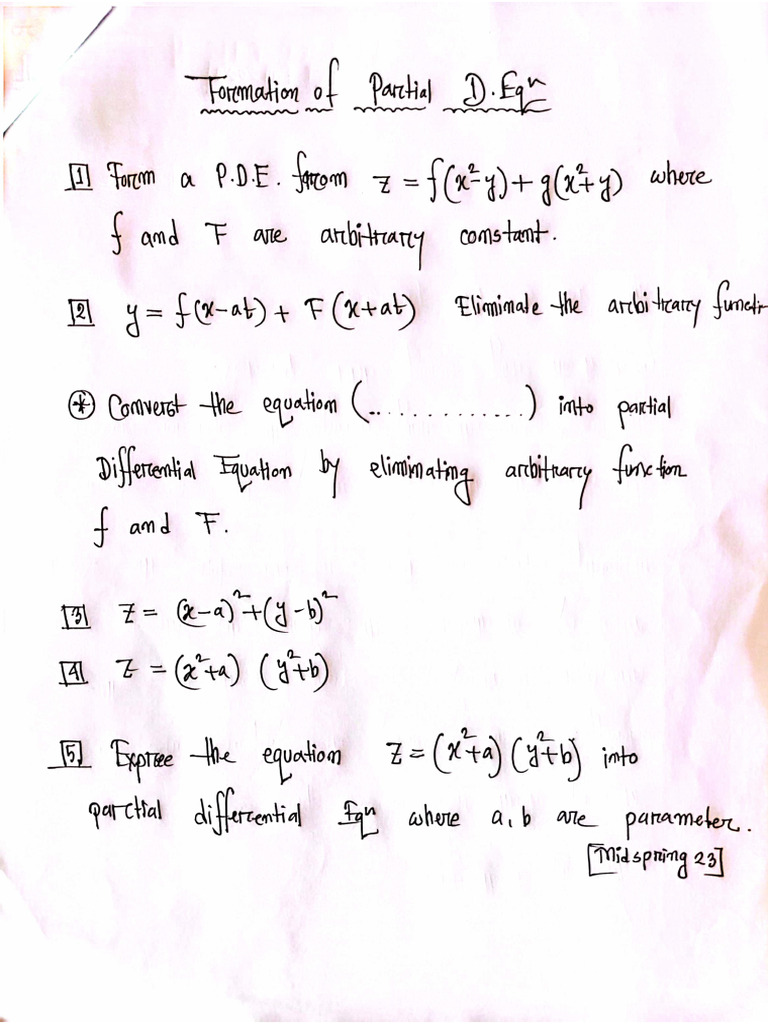 Formation of Partial D.Eqn
1 Form a P.D.E. from z = f(x²-y) + g(x²+y) where
f and F are arbitrary constant.
2 y = f(x-at) + F(x+at) Eliminate the arbitrary functi
* Convert the equation (...............) into partial
Differential Equation by eliminating arbitrary function
f and F.
3 z = (x-a)² + (y-b)²
4 z = (x²+a) (y²+b)
5 Expree the equation z = (x²+a) (y²+b) into
partial differential Eqn where a, b are parameter.
[Midspring 23]